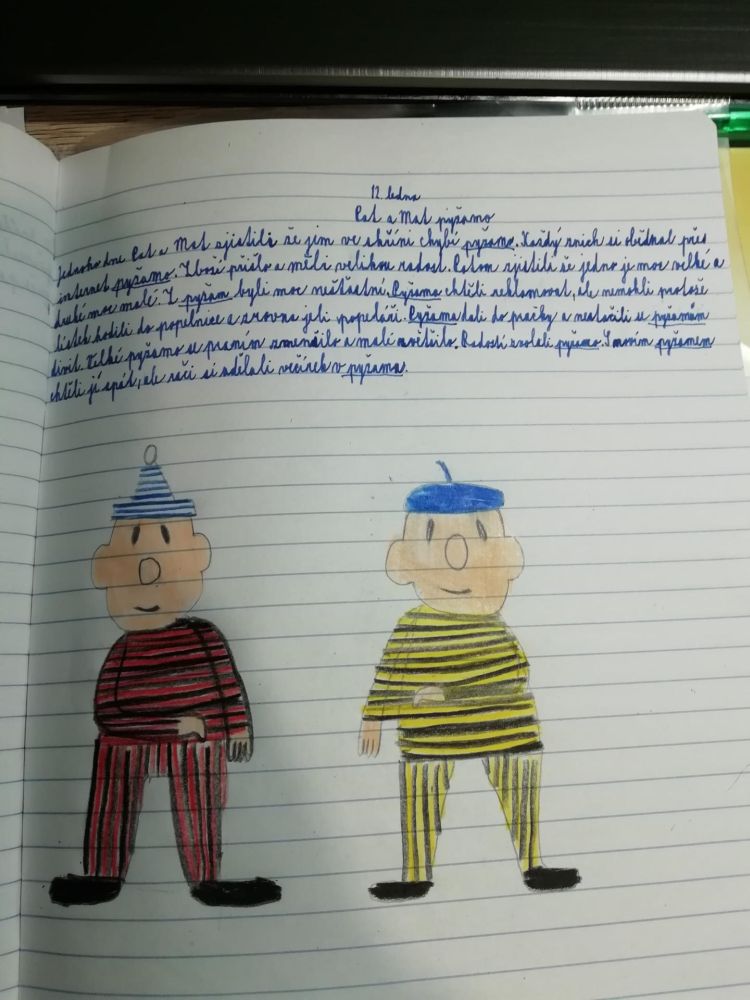 12. ledna
Pat a Mat pyžamo
Jednoho dne Pat a Mat zjistili že jim ve skříni chybí pyžamo. Každý znich si objednal přes
internet pyžamo. Zboží přišlo a měli velikou radost. Potom zjistili že jedno je moc velké a
druhé moc malé. Z pyžam byli moc nešťastní. Pyžama chtěli reklamovat, ale nemohli protože
lístek hodili do popelnice a zrovna jeli popeláři. Pyžama dali do pračky a nestačili se pyžamům
divit. Velké pyžamo se praním zmenšilo a malé zvětšilo. Radostí zvolali pyžamo. S novým pyžamem
chtěli jí spát, ale rači si udělali večírek v pyžamu.